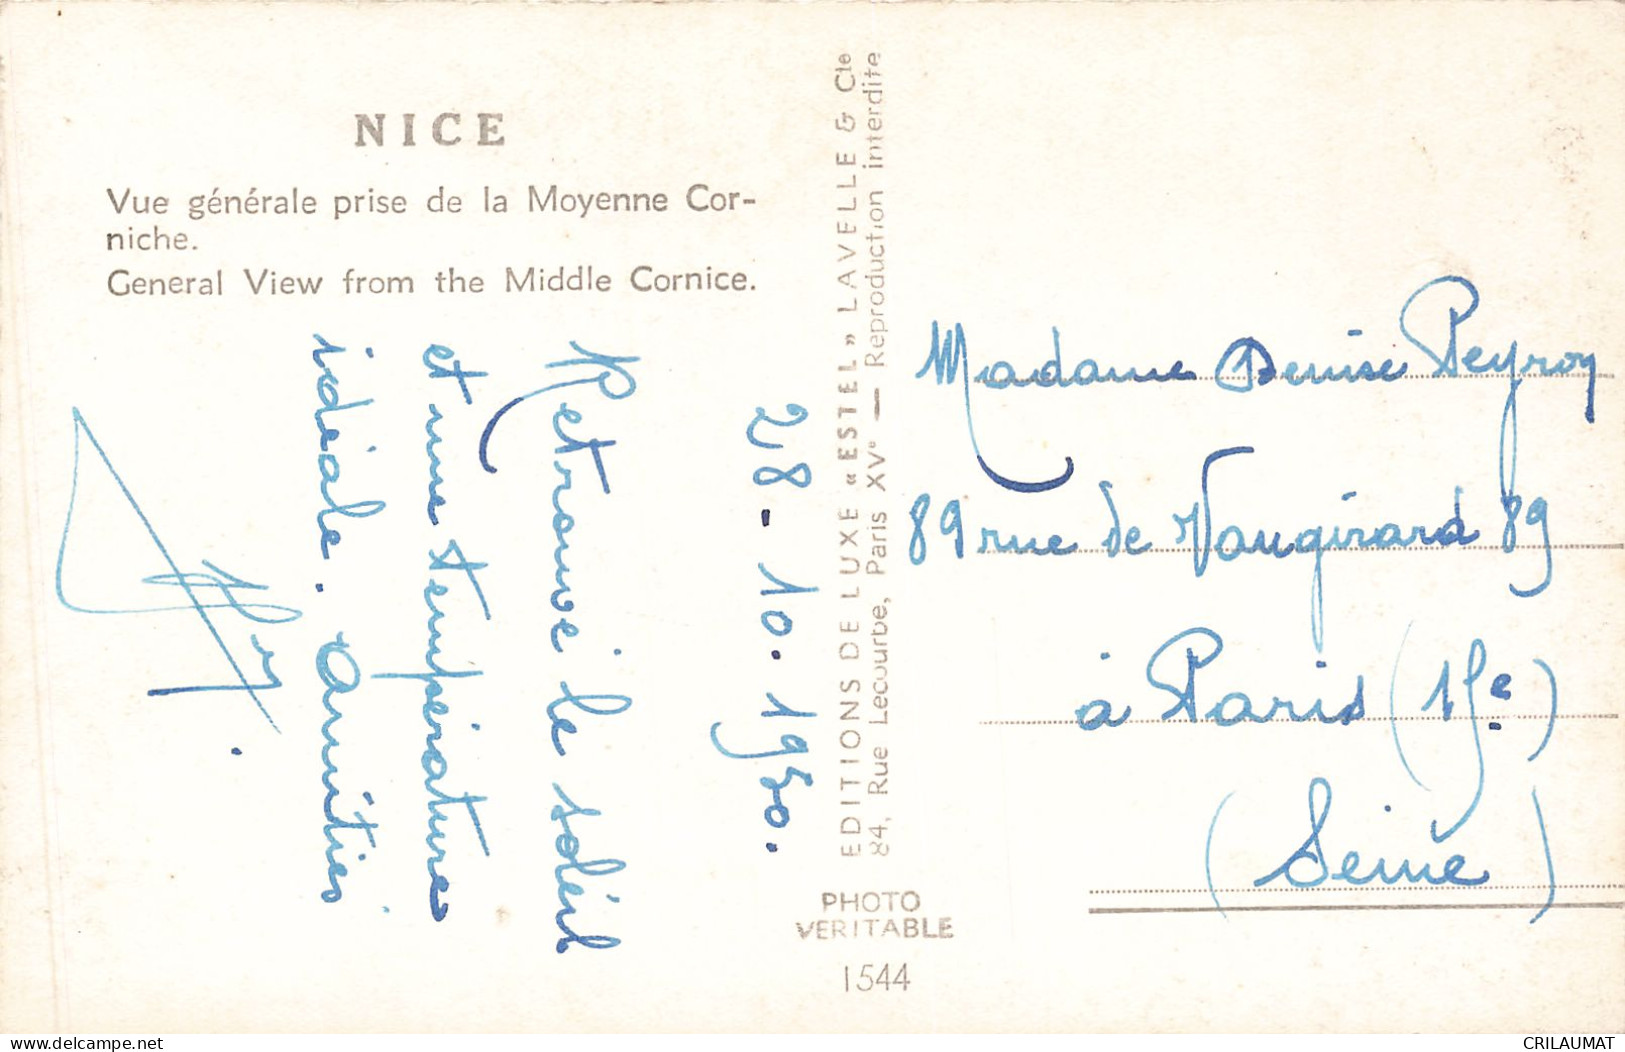 NICE
Vue générale prise de la Moyenne Cor-
niche.
General View from the Middle Cornice.
28-10.1950.
Retrouvé le soleil
et une températures
idéale. Amitiés
EDITIONS DE LUXE « ESTEL » LAVELLE & Cie
84, Rue Lecourbe, Paris XVe — Reproduction interdite
PHOTO
VERITABLE
1544
Madame Denise Peyron
89 rue de Vaugirard 89
à Paris (15e)
(Seine)
www.delcampe.net
CRILAUMAT